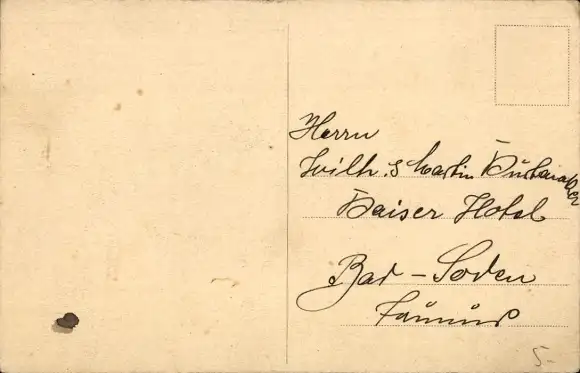 Herrn
Wilh. & Martin
Kaiser Hotel
Bad-Soden
Taunus
5-